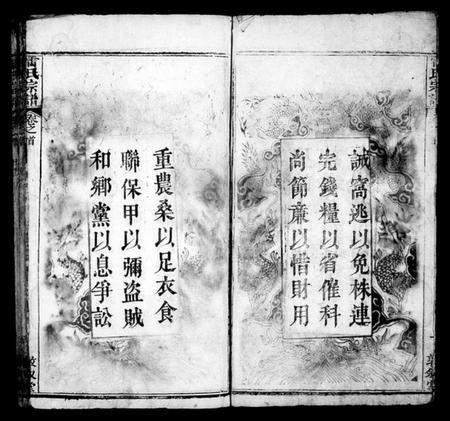 氏宗譜
誠窩逃以免株連
完錢糧以省催科
尚節廉以惜財用
重農桑以足衣食
聯保甲以彌盜賊
和鄉黨以息爭訟
氏宗譜
卷之首